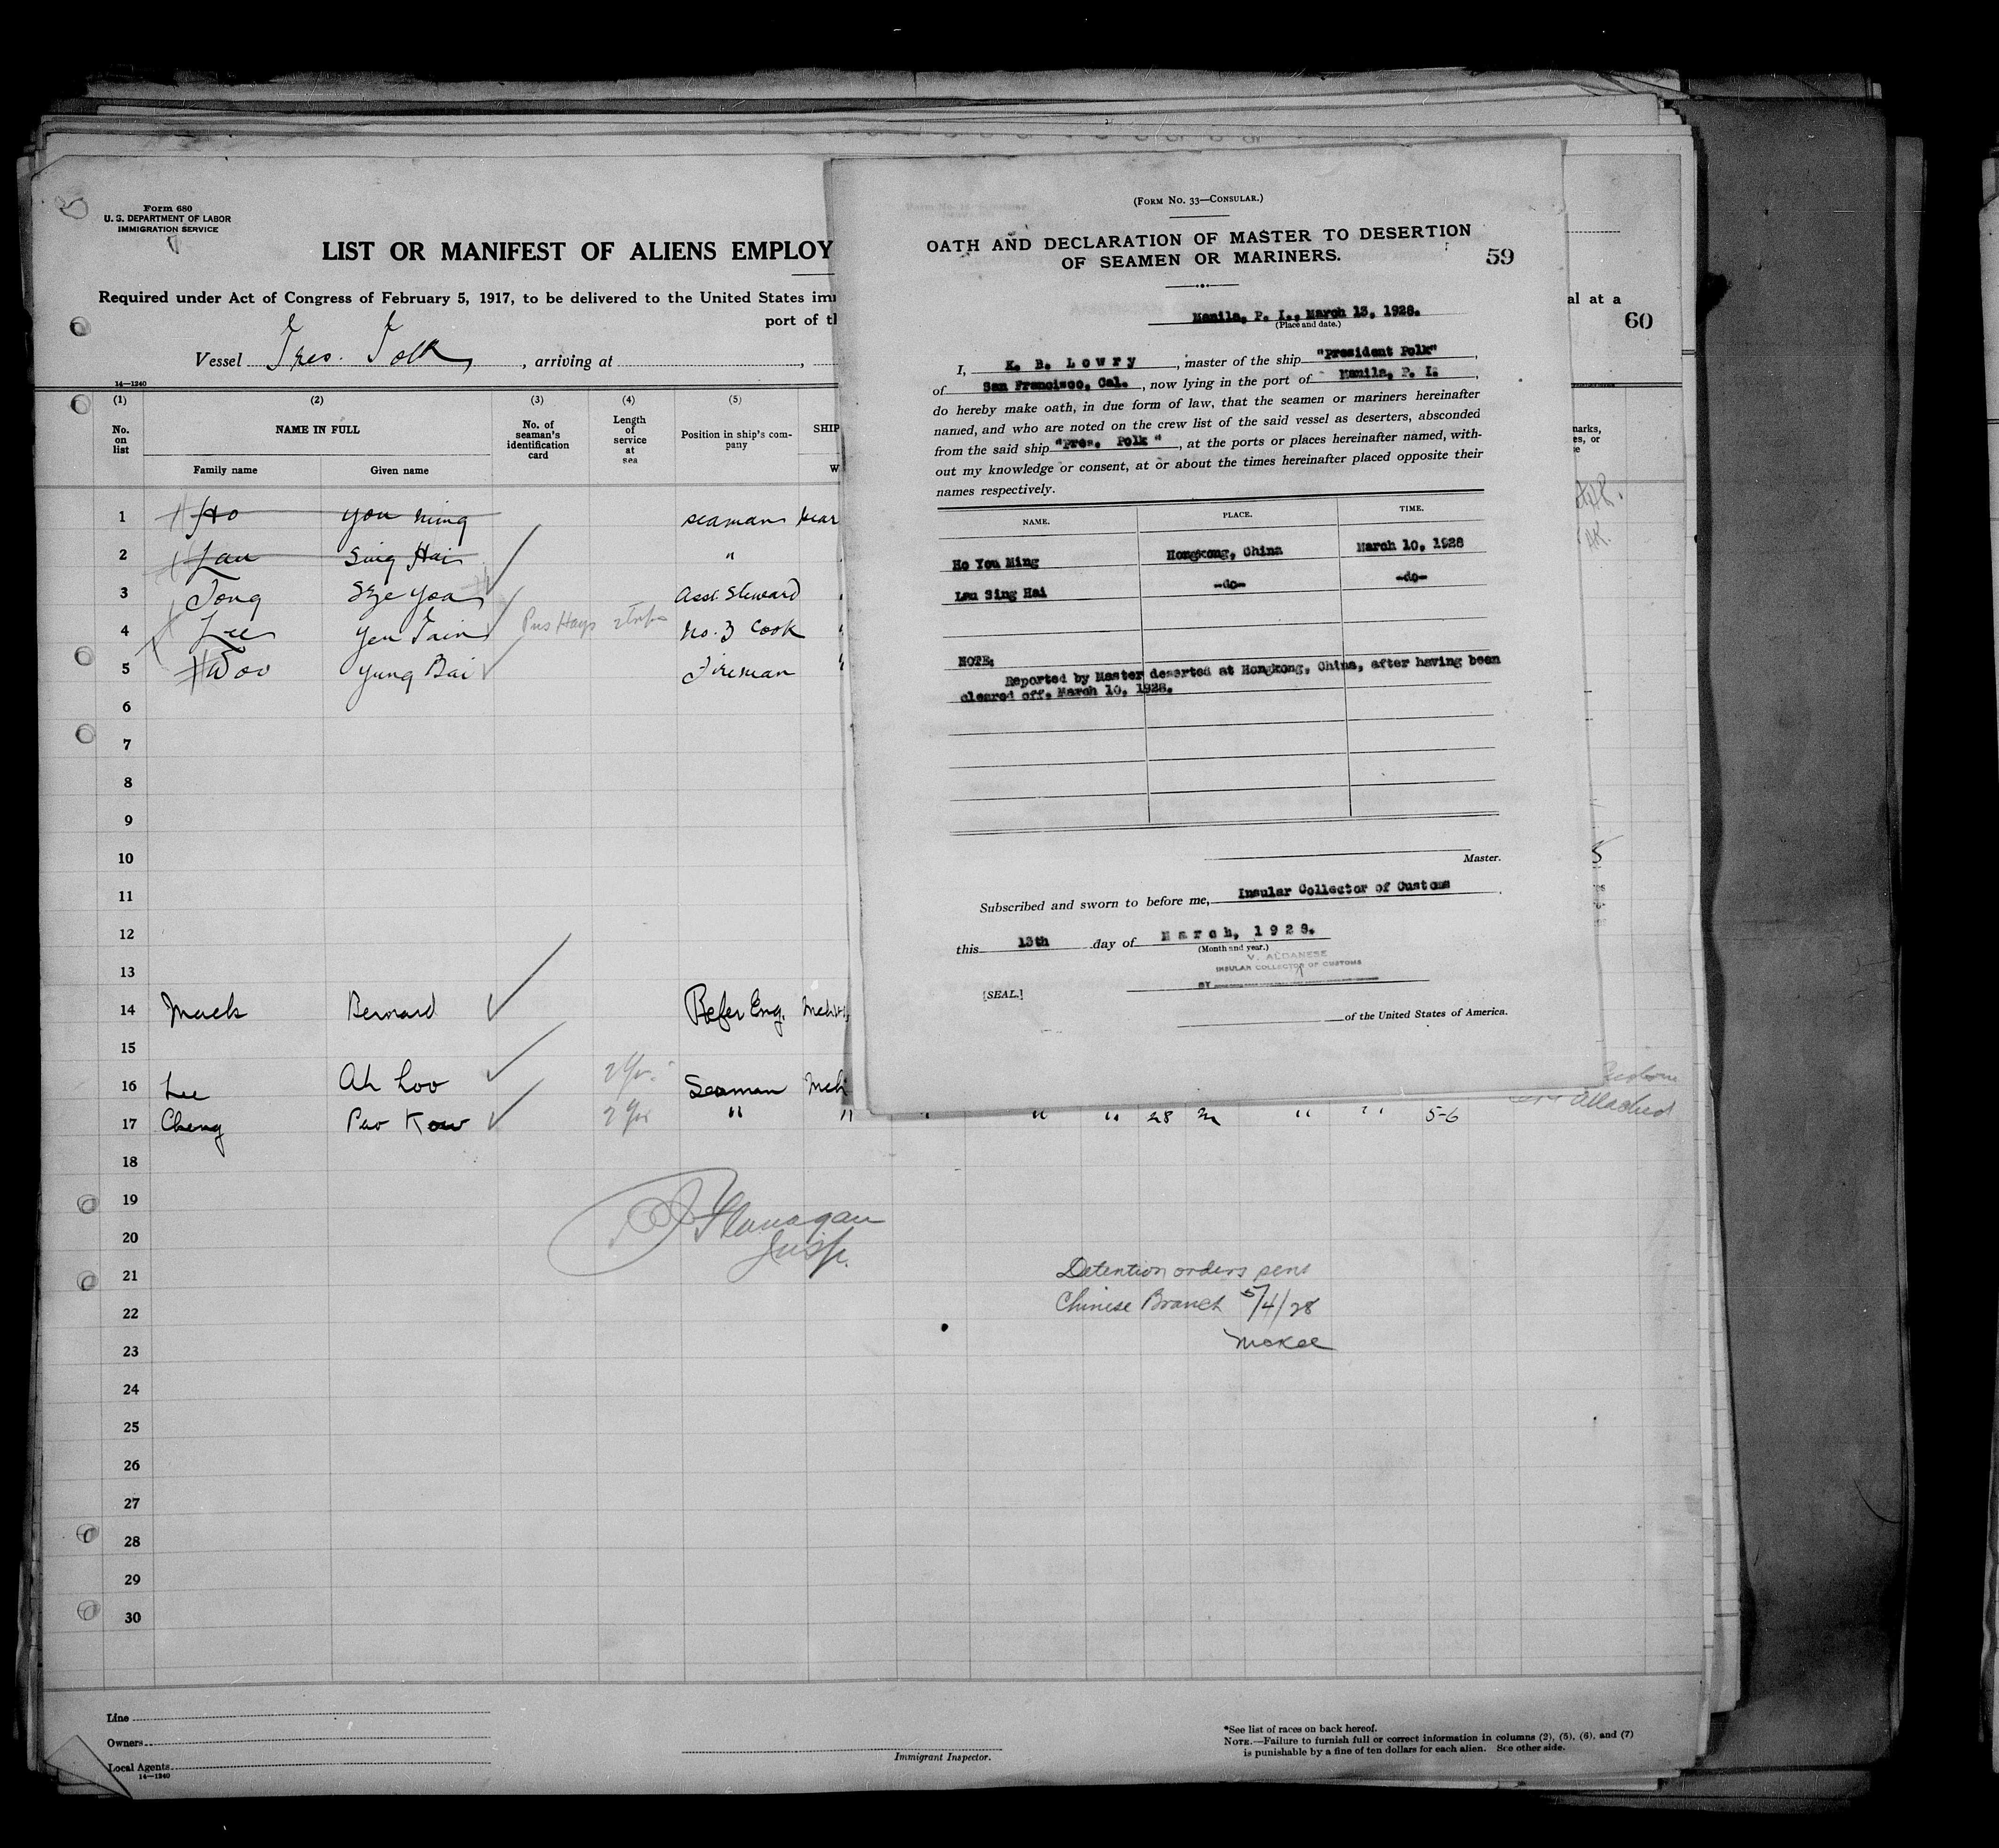 Form 680
U. S. DEPARTMENT OF LABOR
IMMIGRATION SERVICE
LIST OR MANIFEST OF ALIENS EMPLOY
Required under Act of Congress of February 5, 1917, to be delivered to the United States imm
al at a
port of th
60
Vessel Pres. Polk, arriving at
14—1240
(1) (2) (3) (4) (5)
No. on list
NAME IN FULL
Family name Given name
No. of seaman's identification card
Length of service at sea
Position in ship's company
SHIP
W
1 Ho You Ming seaman
2 Lau Sing Hai "
3 Tong Sze Yoa Asst. Steward
4 Lee Yen Pres Hays No. 3 Cook
5 Woo Yung Bai Fireman
6
7
8
9
10
11
12
13
14 Bernard Refer Eng.
15
16 Lee Ah Loo 2 yrs. Seaman
17 Cheng Pao Kow 2 yrs " " " " " 28 m " " 5-6
attached
18
19
20
21
22
23
24
25
26
27
28
29
30
Flanagan
Insp.
Detention orders sent
Chinese Branch 5/4/28
McKee
Line
Owners
Local Agents
14—1240
Immigrant Inspector.
*See list of races on back hereof.
NOTE.—Failure to furnish full or correct information in columns (2), (5), (6), and (7)
is punishable by a fine of ten dollars for each alien. See other side.
(FORM NO. 33—CONSULAR.)
OATH AND DECLARATION OF MASTER TO DESERTION
OF SEAMEN OR MARINERS.
59
Manila, P. I., March 13, 1928.
(Place and date.)
I, K. B. Lowry, master of the ship "President Polk",
of San Francisco, Cal., now lying in the port of Manila, P. I.,
do hereby make oath, in due form of law, that the seamen or mariners hereinafter
named, and who are noted on the crew list of the said vessel as deserters, absconded
from the said ship "Pres. Polk", at the ports or places hereinafter named, with-
out my knowledge or consent, at or about the times hereinafter placed opposite their
names respectively.
NAME. PLACE. TIME.
Ho You Ming Hongkong, China March 10, 1928
Lau Sing Hai -do- -do-
NOTE:
Reported by Master deserted at Hongkong, China, after having been
cleared off. March 10, 1928.
Master.
Subscribed and sworn to before me, Insular Collector of Customs
this 13th day of March, 1928.
(Month and year.)
V. ALDANESE
INSULAR COLLECTOR OF CUSTOMS
BY
[SEAL.]
of the United States of America.